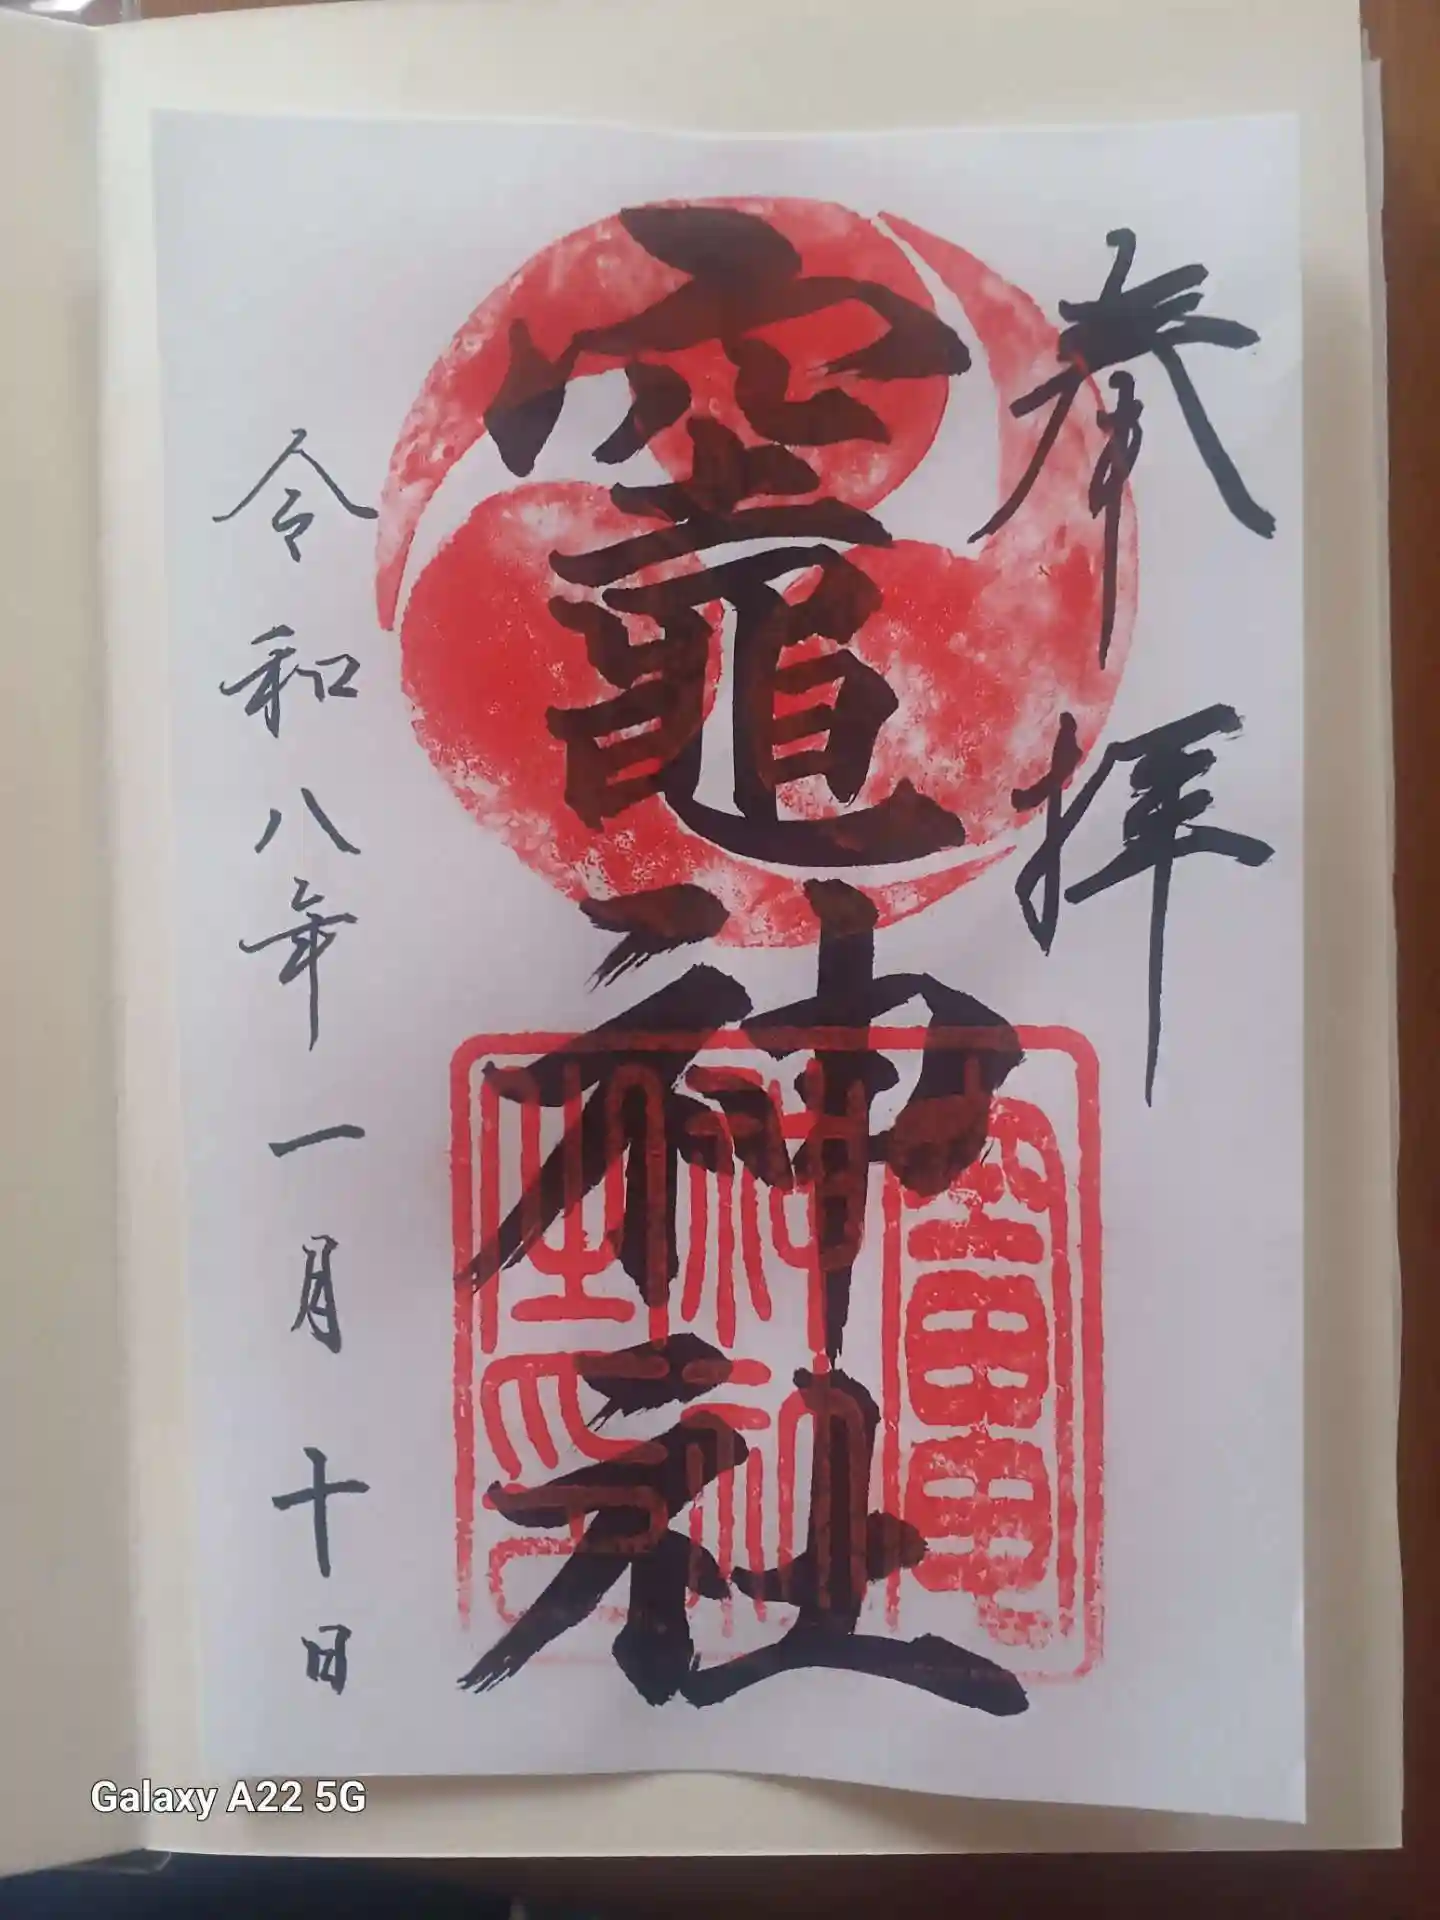 奉拝
竈神社
竈
神社
之印
令和八年一月十日
Galaxy A22 5G